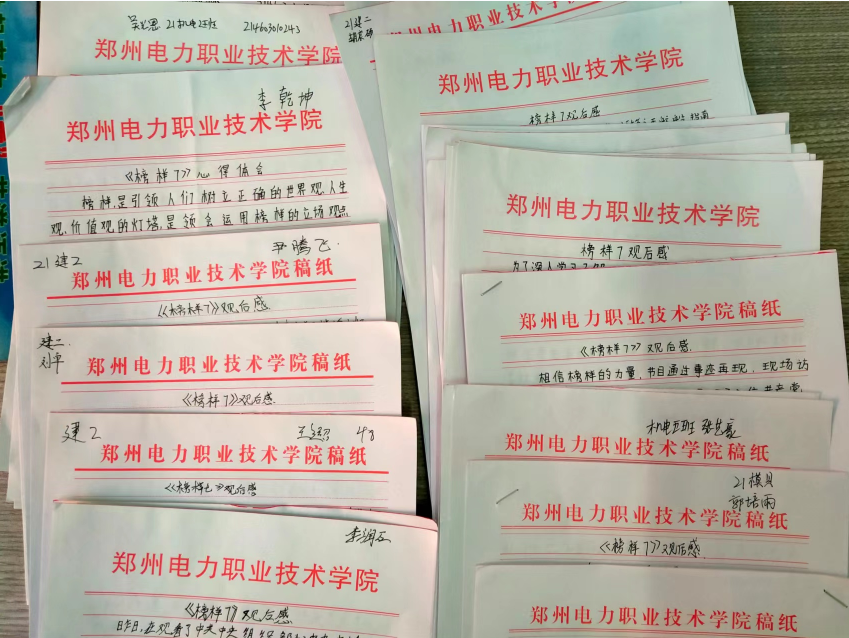 21机电 214603010243
郑州电力职业技术学院
李乾坤
郑州电力职业技术学院
《榜样7》心得体会
榜样,是引领人们树立正确的世界观、人生
观、价值观的灯塔,是领会运用榜样的立场观点
21建2 尹腾飞
郑州电力职业技术学院稿纸
《榜样7》观后感
建二
郑州电力职业技术学院稿纸
《榜样7》观后感
建2 48
郑州电力职业技术学院稿纸
《榜样七》观后感
李润石
郑州电力职业技术学院
《榜样7》观后感
昨日,在观看了中共中央组织部
21建二
郑州电力职业技术学院
榜样7观后感
郑州电力职业技术学院
榜样7观后感
为了深入学习
郑州电力职业技术学院稿纸
《榜样7》观后感
相信榜样的力量,节目通过事迹再现,现场访
机电五班
郑州电力职业技术学院稿纸
21模具
郭培雨
郑州电力职业技术学院稿纸
《榜样7》观后感
郑州电力职业技术学院稿纸